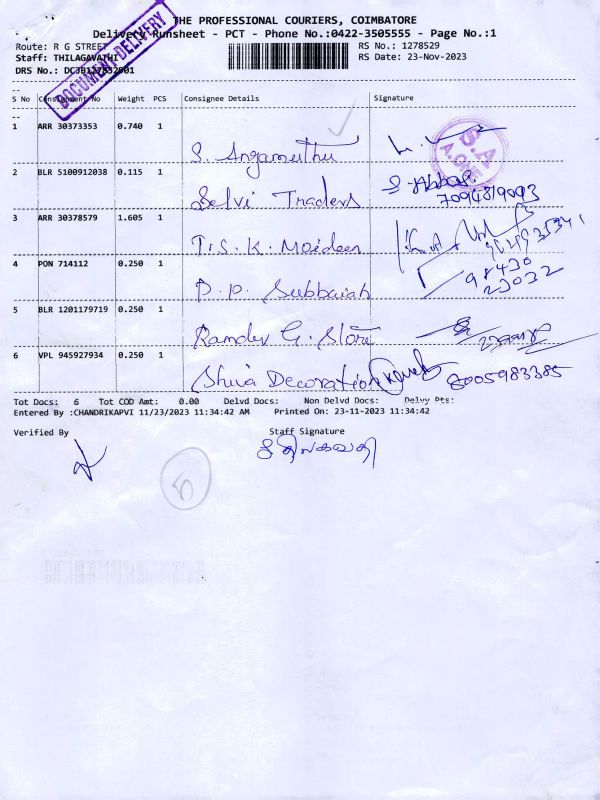 THE PROFESSIONAL COURIERS, COIMBATORE
Delivery Runsheet - PCT - Phone No.:0422-3505555 - Page No.:1
DOCUMENT DELIVERY
Route: R G STREET
RS No.: 1278529
Staff: THILAGAVATHI
RS Date: 23-Nov-2023
DRS No.:
S No Consignment No Weight PCS Consignee Details Signature
1 ARR 30373353 0.740 1 S. Angamuthu
S.A
2 BLR 5100912038 0.115 1 Selvi Traders
7094819093
3 ARR 30378579 1.605 1 T.S.K. Moideen
4 PON 714112 0.250 1 P.P. Subbaiah 98430
23032
5 BLR 1201179719 0.250 1 Ramdev G. Store
6 VPL 945927934 0.250 1 Shiva Decoration 8005983385
Tot Docs: 6 Tot COD Amt: 0.00 Delvd Docs: Non Delvd Docs: Delvy Pts:
Entered By :CHANDRIKAPVI 11/23/2023 11:34:42 AM Printed On: 23-11-2023 11:34:42
Verified By Staff Signature
திலகவதி
5